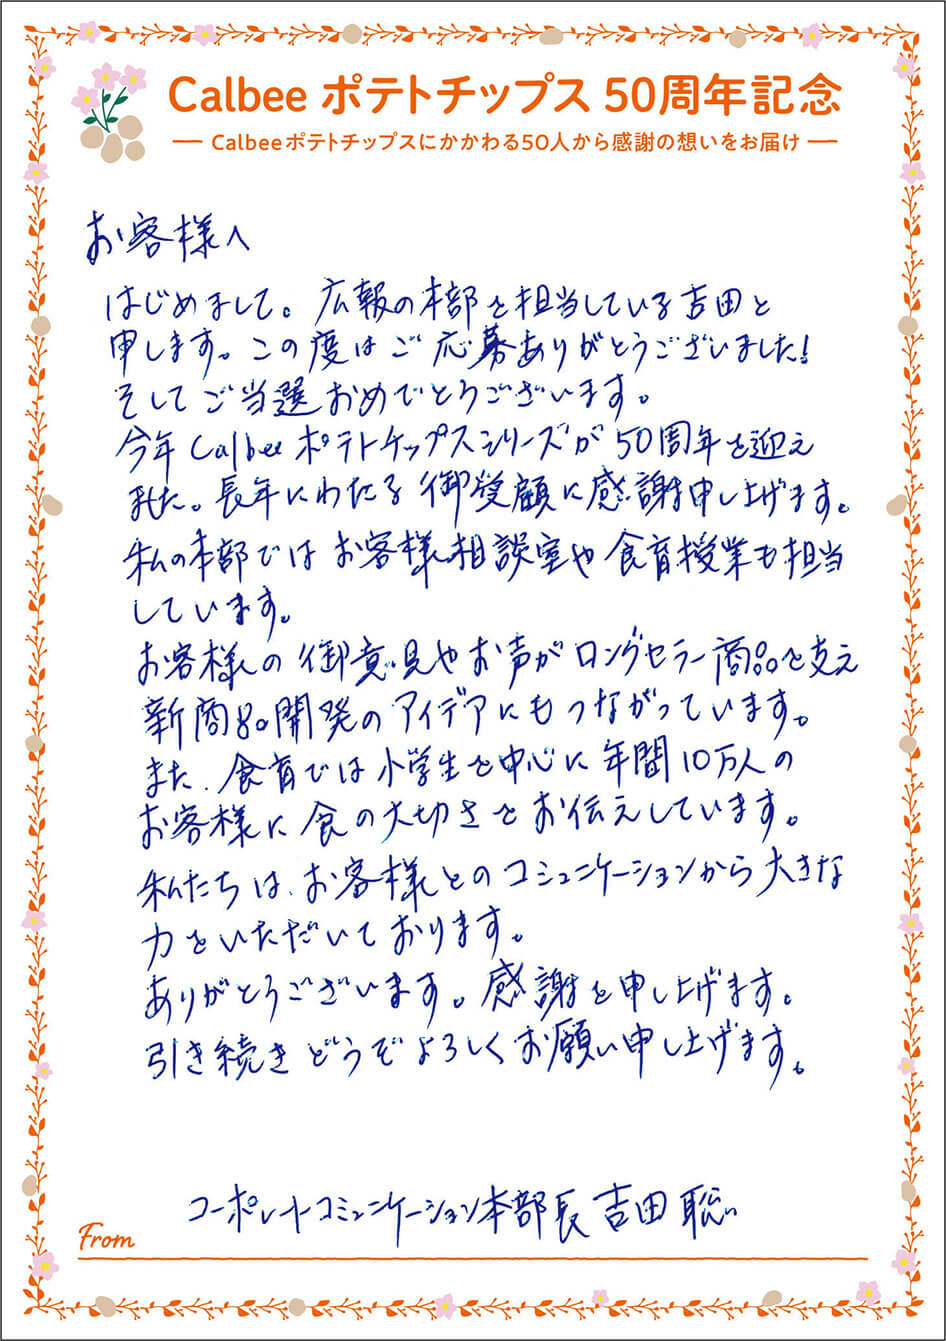 Calbee ポテトチップス 50周年記念
Calbeeポテトチップスにかかわる50人から感謝の想いをお届け
お客様へ
はじめまして。広報の本部を担当している吉田と
申します。この度はご応募ありがとうございました!
そしてご当選おめでとうございます。
今年Calbeeポテトチップスシリーズが50周年を迎え
ました。長年にわたる御愛顧に感謝申し上げます。
私の本部ではお客様相談室や食育授業も担当
しています。
お客様の御意見やお声がロングセラー商品を支え
新商品開発のアイデアにもつながっています。
また、食育では小学生を中心に年間10万人の
お客様に食の大切さをお伝えしています。
私たちは、お客様とのコミュニケーションから大きな
力をいただいております。
ありがとうございます。感謝を申し上げます。
引き続きどうぞよろしくお願い申し上げます。
コーポレートコミュニケーション本部長 吉田 聡
From